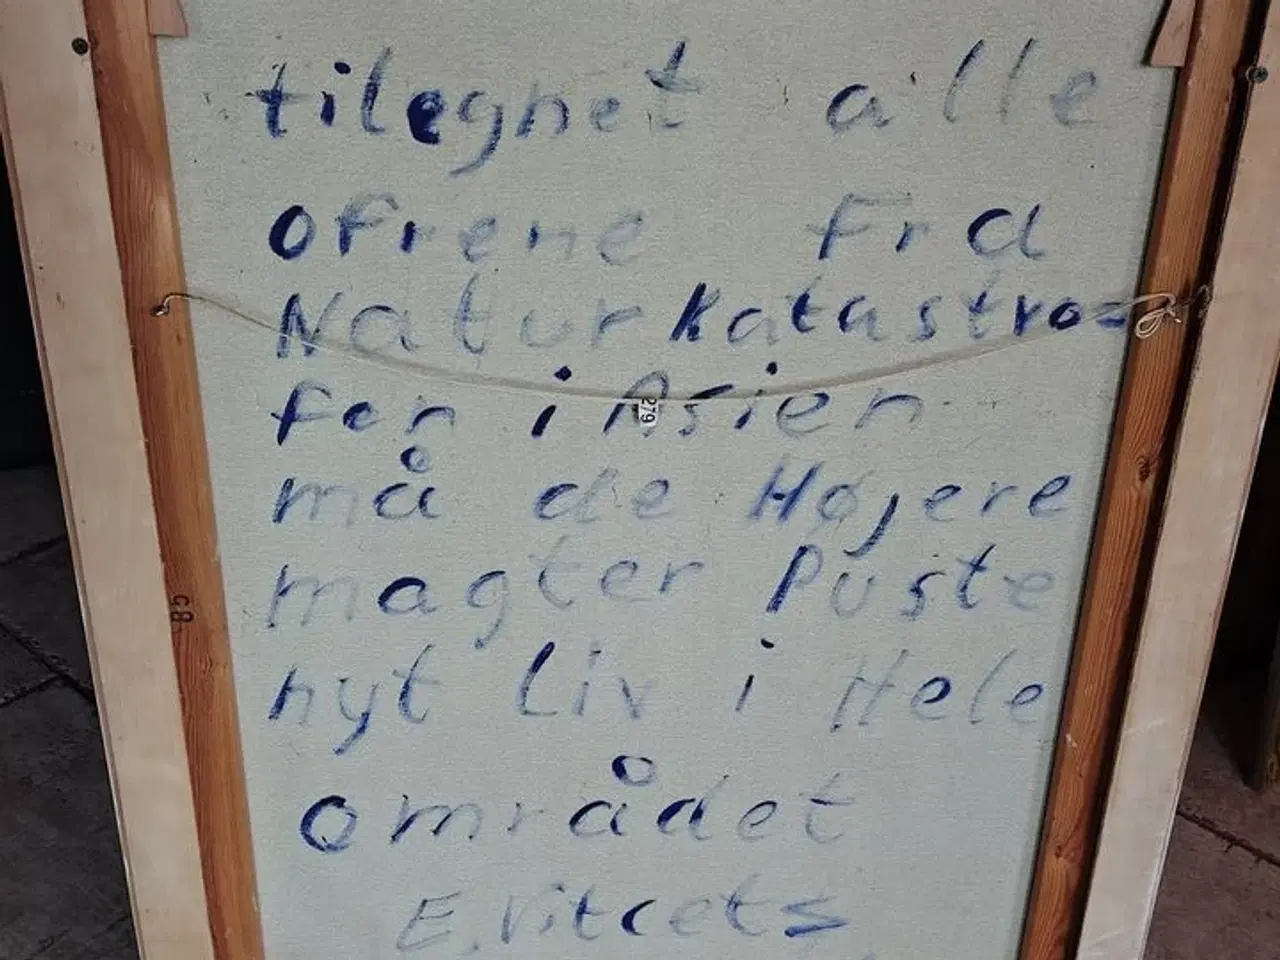 tilegnet alle
ofrene Fra
Naturkatastro=
fen i Asien
279
må de Højere
magter Puste
nyt Liv i Hele
området